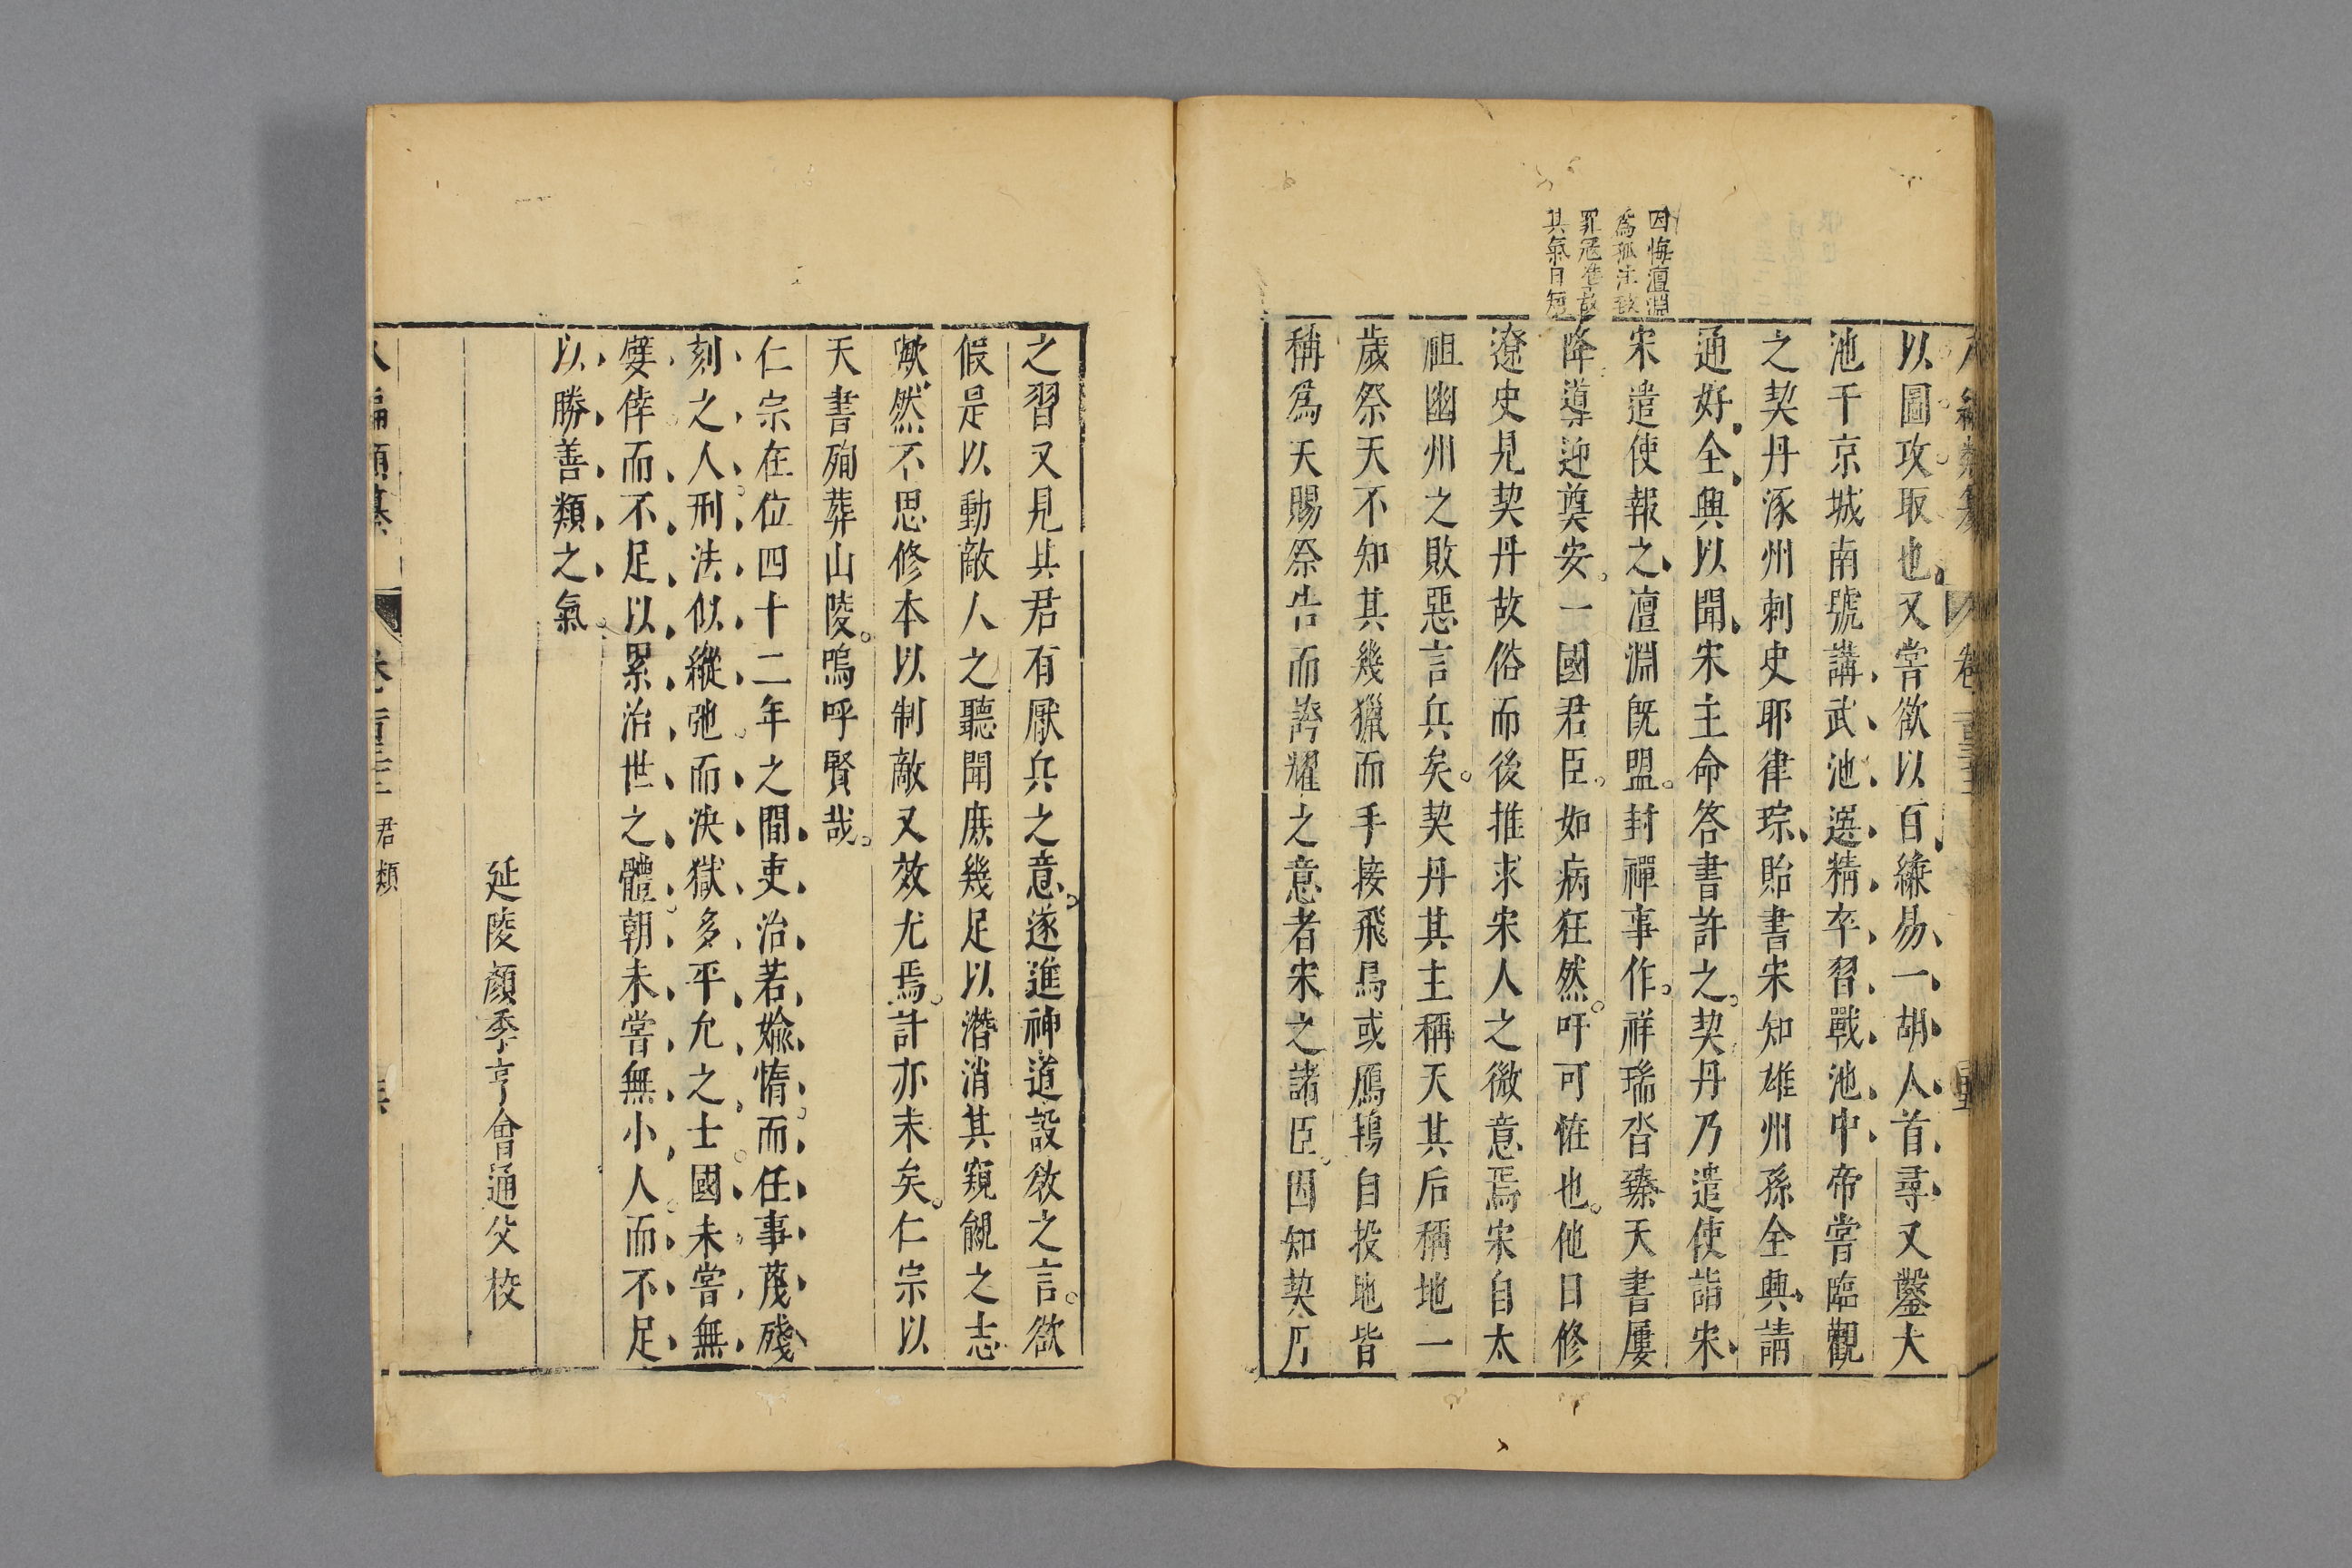 因悔澶淵
爲孤注致
罪冦準故
其氣日短
以圖攻取也又嘗欲以百縑易一胡人首尋又鑿大
池于京城南號講武池選精卒習戰池中帝嘗臨觀
之契丹涿州刺史耶律琮貽書宋知雄州孫全興請
通好全興以聞宋主命答書許之契丹乃遣使詣宋
宋遣使報之澶淵旣盟封禪事作祥瑞沓臻天書屢
降導迎奠安一國君臣如病狂然吁可恠也他日修
遼史見契丹故俗而後推求宋人之微意焉宋自太
祖幽州之敗惡言兵矣契丹其主稱天其后稱地一
歲祭天不知其幾獵而手接飛鳥或鴈鴇自投地皆
稱爲天賜祭告而誇耀之意者宋之諸臣因知契丹
之習又見其君有厭兵之意遂進神道設教之言欲
假是以動敵人之聽聞庶幾足以潛消其窺覦之志
歟然不思修本以制敵又效尤焉計亦末矣仁宗以
天書殉葬山陵嗚呼賢哉
仁宗在位四十二年之間吏治若媮惰而任事蔑殘
刻之人刑法似縱弛而決獄多平允之士國未嘗無
嬖倖而不足以累治世之體朝未嘗無小人而不足
以勝善類之氣
延陵顏季亨會通父校
君類